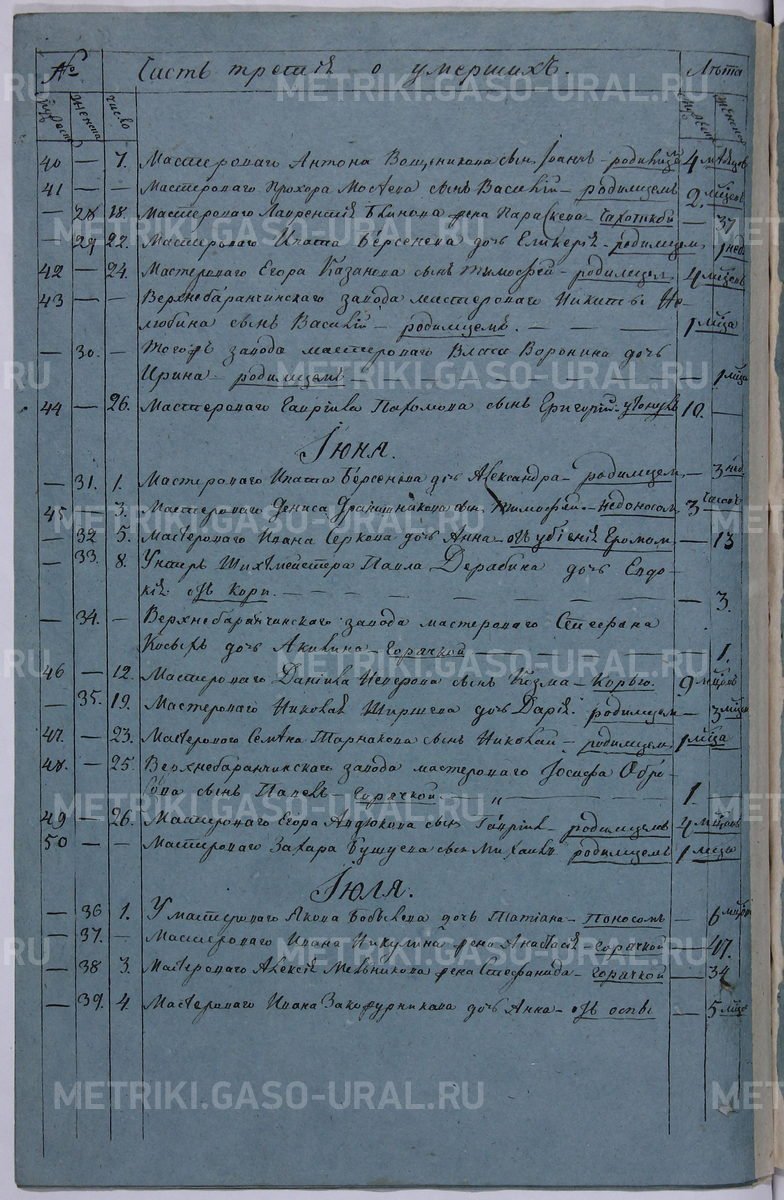 № Часть третія о умершихъ. Лѣта
мужеск женска число мужеск женска
40 — 7. Мастероваго Антона Вощеникова сынъ Іоаннъ — родимцемъ 4 мѣсцовъ
41 — — Мастероваго Прохора Мосѣева сынъ Василій — родимцемъ 2. мѣсцовъ
— 28 18. Мастероваго Лаврентія Блинова жена Параскева — чахоткой — 37
— 29 22. Мастероваго Ипата Берсенева дочь Гликерія — родимцем, 1 нед.
42 — 24. Мастероваго Егора Казанова сынъ Тимофей — родимцем. 4 мѣсцовъ
43 — — Верхнебаранчинскаго завода мастероваго Никиты Не-
любина сынъ Василій — родимцемъ. — — — 1 мѣсца
— 30. — Тогожъ завода мастероваго Власа Воронина дочь
Ирина родимцемъ — — — 1 мѣсца
44 — 26. Мастероваго Гаврила Пахомова сынъ Григорій утонулъ 10. —
Іюня.
— 31. 1. Мастероваго Ипата Берсенева дочь Александра — родимцем — 3 нед.
45 — 3. Мастероваго Дениса сын Тимофей — недоносом 3 часовъ
— 32 5. Мастероваго Ивана Серкова дочь Анна — отъ убіенія Громом. — 13
— 33. 8. Унтеръ Шихтмейстера Павла Дерябина дочь Евдо-
кія отъ кори. — — — 3.
— 34. — Верхнебаранчинскаго завода мастероваго Стефана
Косыхъ дочь Акилина — Горячкой — 1.
46 — 12. Мастероваго Данила сынъ Козма — Корью. 9 мѣсцовъ
— 35. 19. Мастероваго Николая Ширшева дочь Дарія родимцем — 3 мѣсцов
47. — 23. Мастероваго Семена Тарнакова сынъ Николай — родимцем. 1 мѣсца
48. — 25. Верхнебаранчинскаго завода мастероваго Іосифа Обро-
сова сынъ Павелъ — Горячкой. „ — 1.
49 — 26. Мастероваго Егора Авдюкова сынъ Гаврилъ — родимцемъ 4 мѣсцовъ
50 — — Мастероваго Захара Бушуева сын Михаилъ родимцемъ 1 мѣсца
Іюля.
— 36 1. У мастероваго Якова Бобылева дочь Татіана — Поносомъ — 6 мѣсцовъ
— 37. — Мастероваго Ивана Никулина жена Анастасія — горячкой — 47.
— 38 3. Мастероваго Алексія Мельникова жена Стефанида — горячкой — 34
— 39. 4. Мастероваго Ивана дочь Анна — отъ оспы — 5 мѣсцов
METRIKI.GASO-URAL.RU